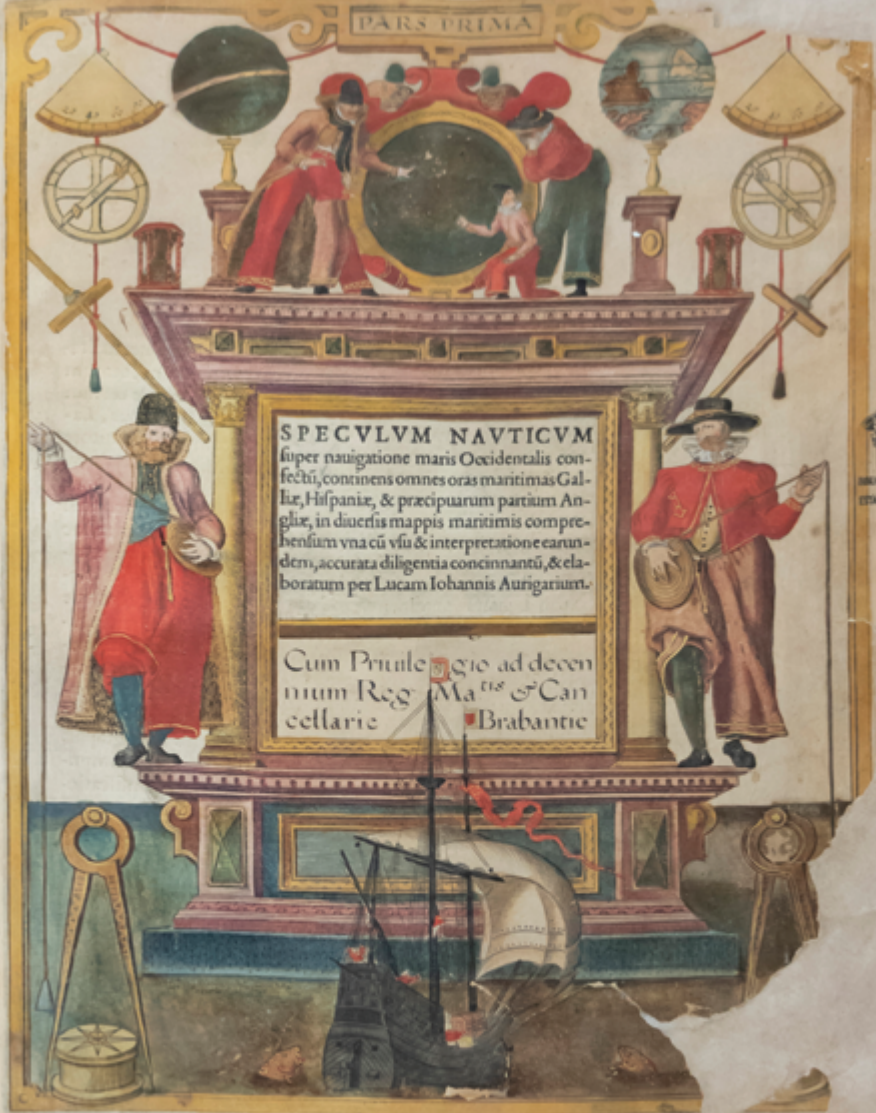 PARS PRIMA
SPECVLVM NAVTICVM
ſuper nauigatione maris Occidentalis con-
fectũ, continens omnes oras maritimas Gal-
liæ, Hiſpaniæ, & præcipuarum partium An-
gliæ, in diuerſis mappis maritimis compre-
henſum vna cũ vſu & interpretatione earun-
dem, accurata diligentia concinnantũ, & ela-
boratum per Lucam Iohannis Aurigarium.
Cum Priuilegio ad decen
nium Reg Ma tis & Can
cellarie Brabantie